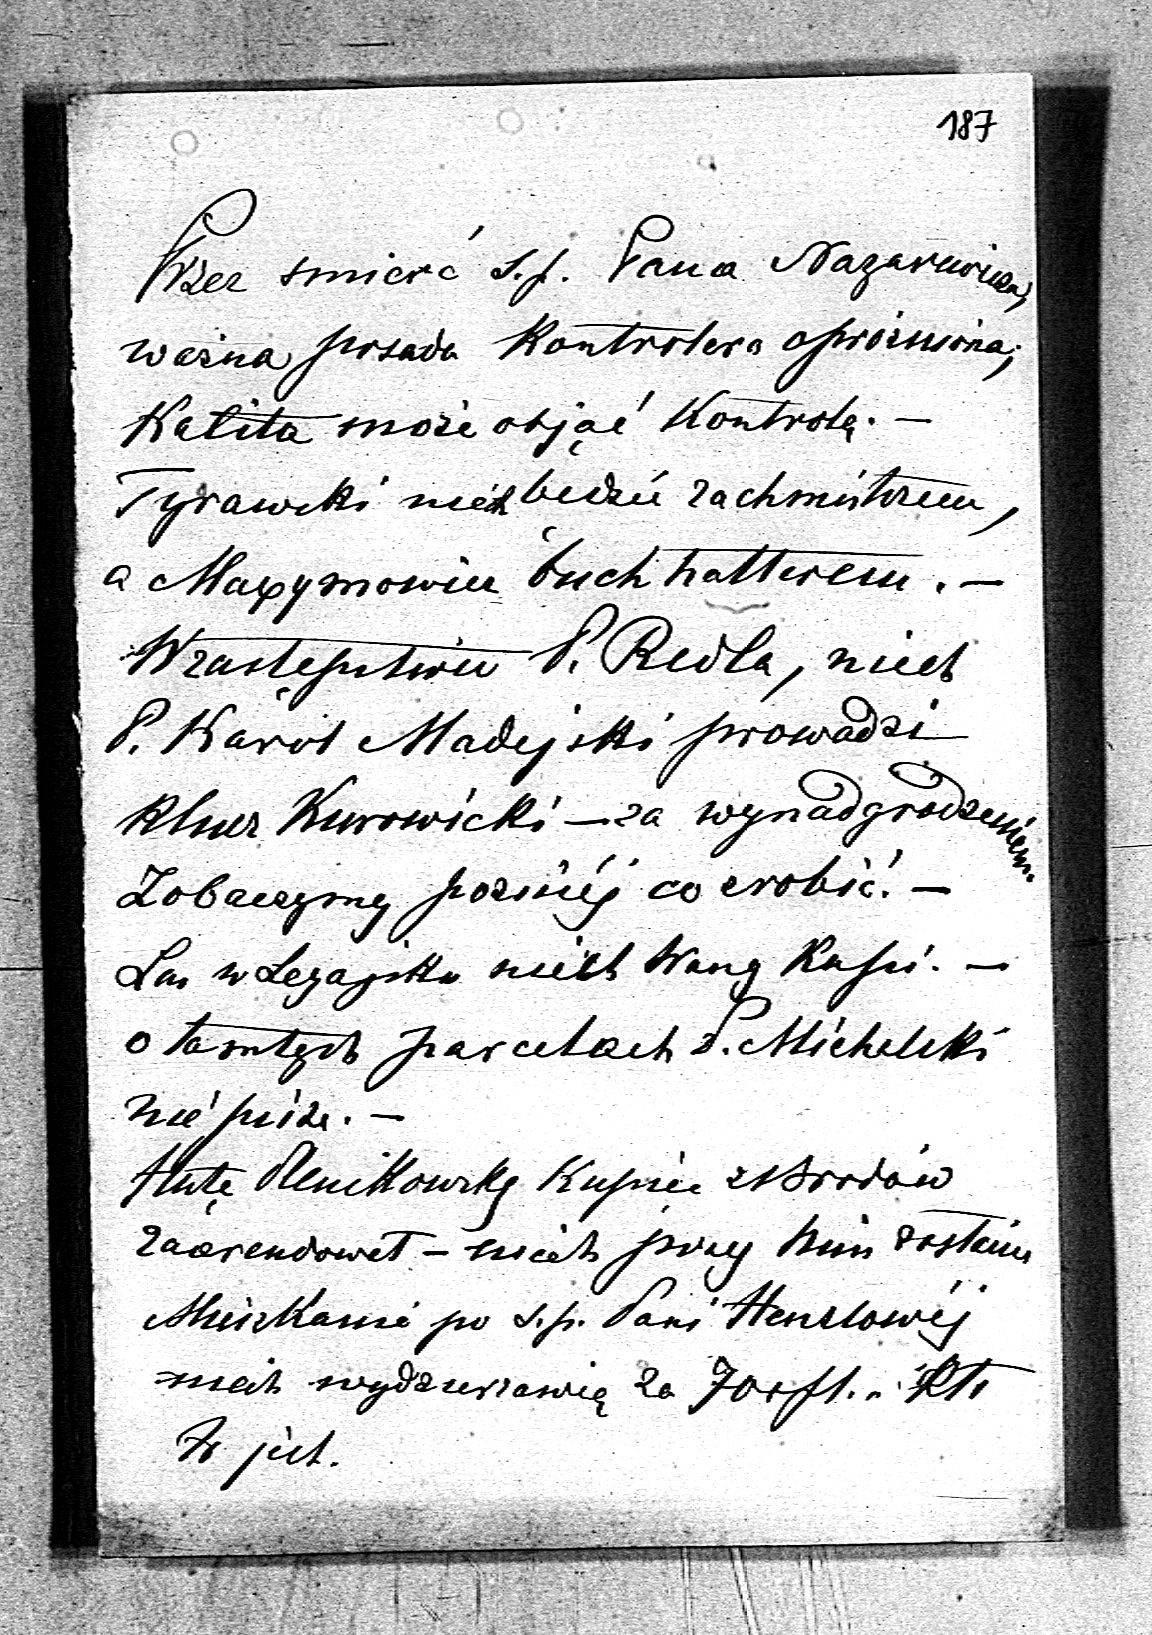 187
Przez smierć s.p. Pana Nazarewicza,
ważna posada Kontrolera opróżniona;
Kalita może objąć Kontrolę. —
Tyrawski niech będzie rachmistrzem,
a Maxymowicz buchhalterem. —
W zastępstwie P. Redla, niech
P. Karol Madejski prowadzi
klucz Kurowicki — za wynadgrodzeniem.
Zobaczymy pozniéj co zrobić. —
Las w Leżajsku niech Wang Kupi. —
o tamtych parcelach P. Michalski
nie pisze. —
Hutę Kupiec z Brodów
zaarendował — niech przy nim zostanie
Mieszkanie po s.p. Pani Henzlowéj
niech wydzierzawią za fl. Kto
to jest.